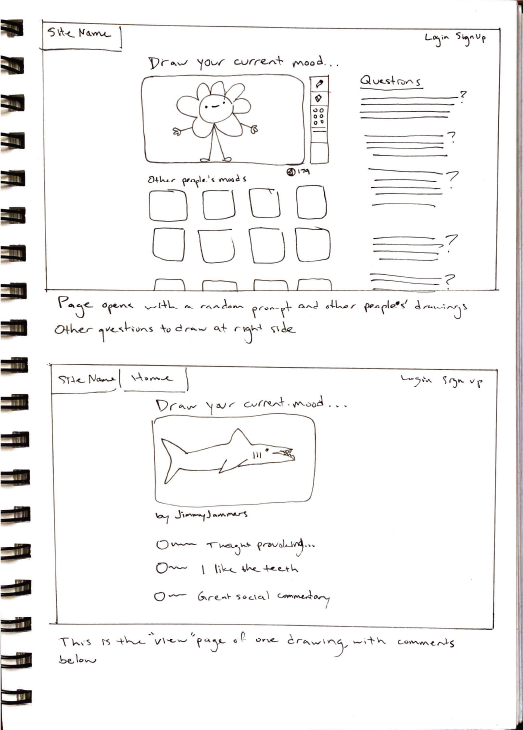 Site Name
Login Sign Up
Draw your current mood...
Questions
?
?
?
?
?
179
Other people's moods
Page opens with a random prompt and other people's' drawings
Other questions to draw at right side
Site Name Home
Login Sign up
Draw your current mood...
by JimmyJammers
Thought provoking...
I like the teeth
Great social commentary
This is the "view" page of one drawing, with comments
below